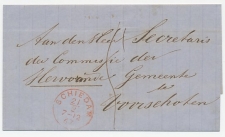 Aan den Heer Secretaris
der Commissie der
Hervormde Gemeente
te
Voorschoten
SCHIEDAM